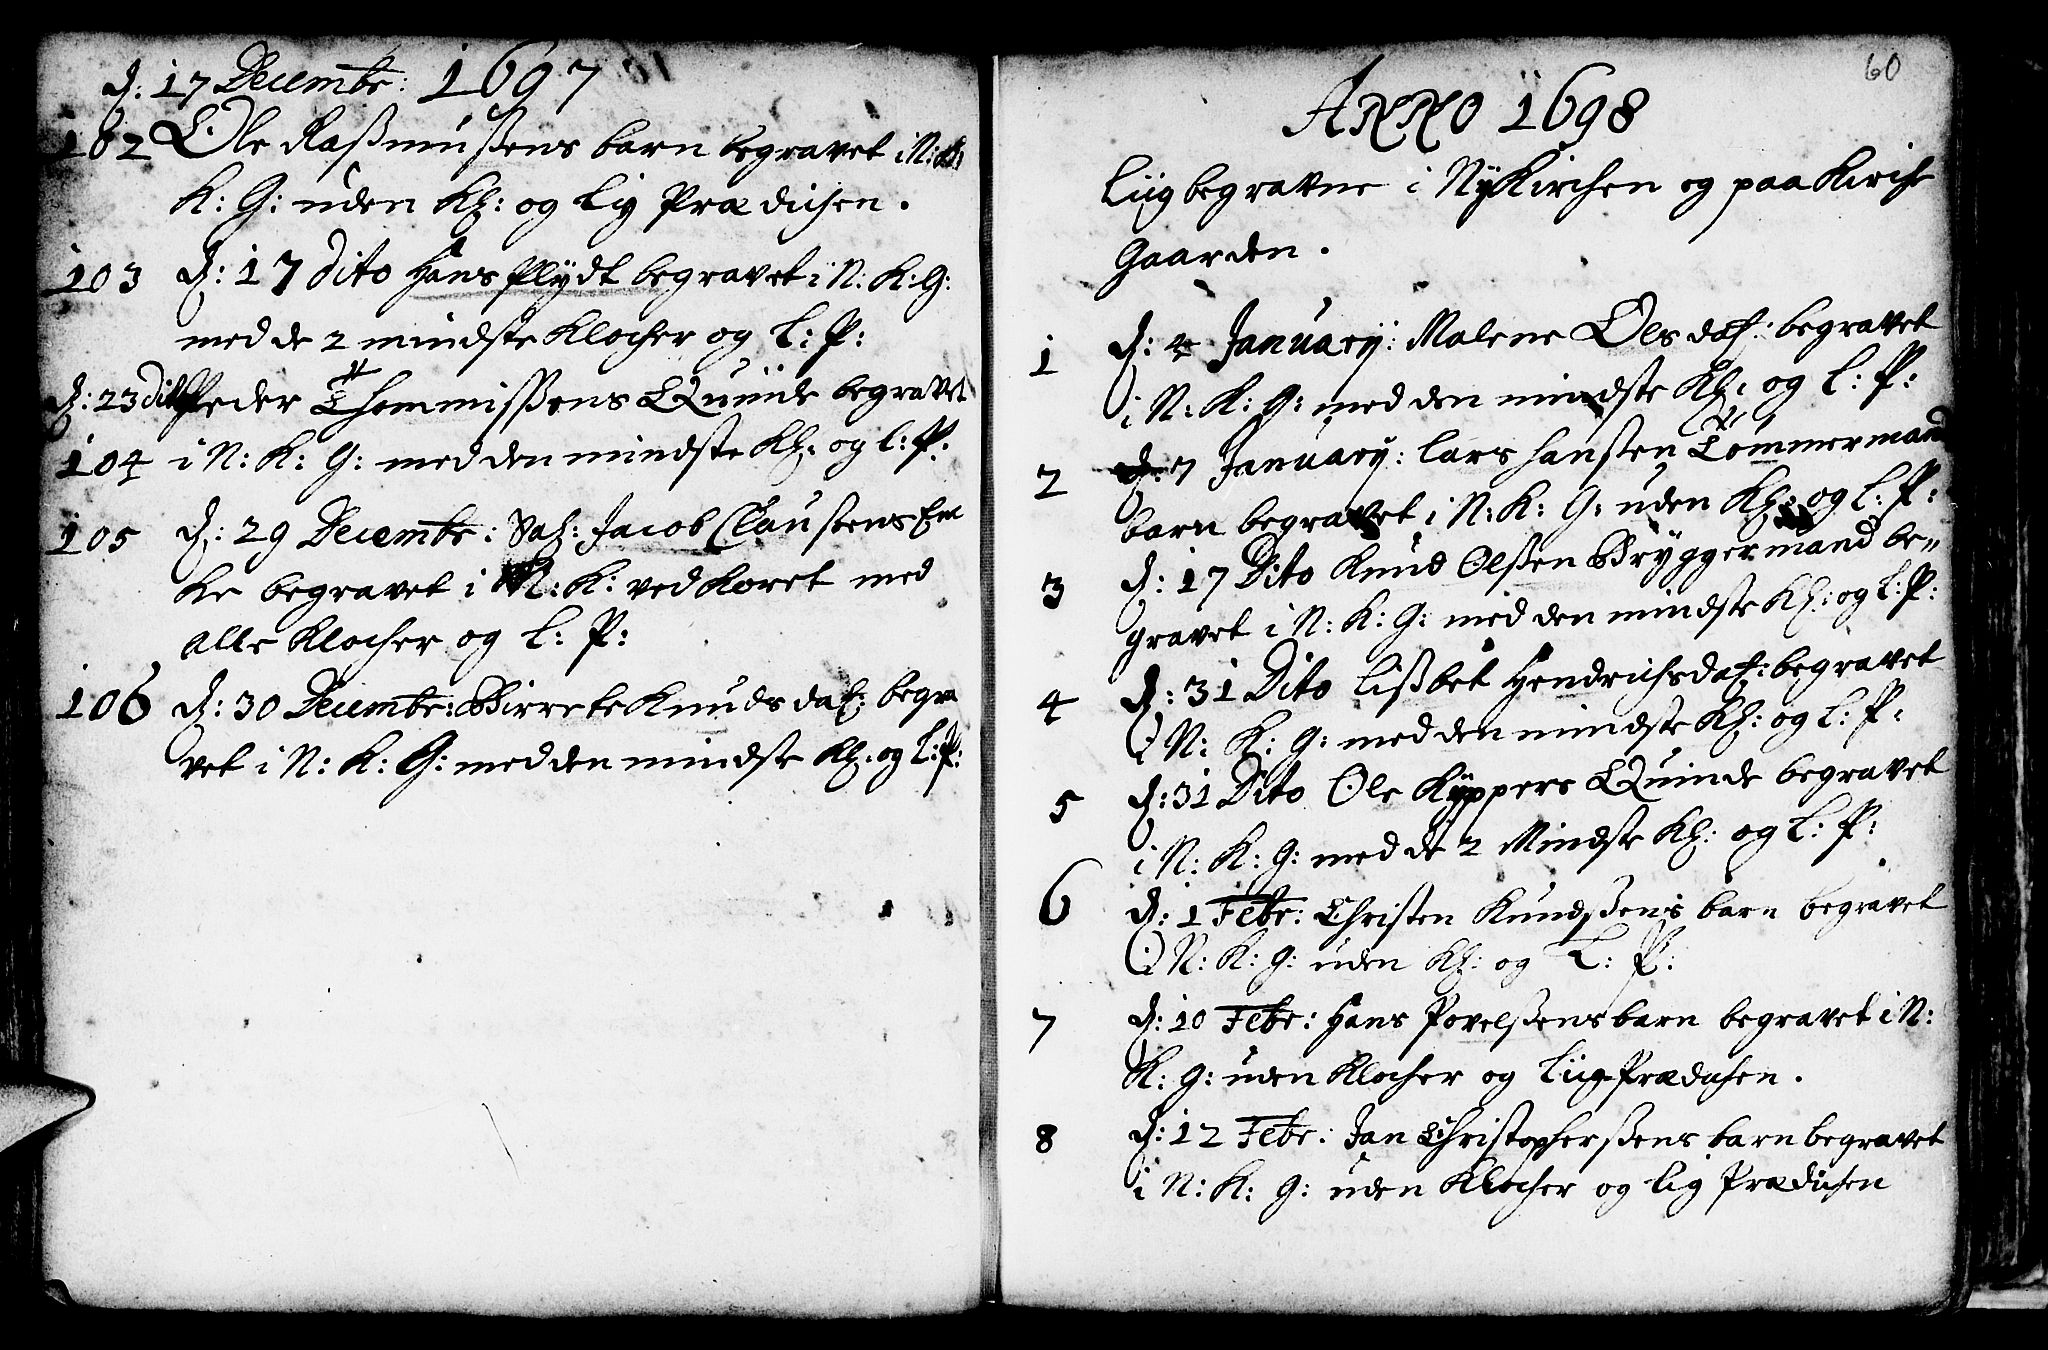 d: 17 Decembr: 1697
102 Ole Rasmusens barn begravet i N:
K: G: uden Kl: og Lig Prædichen.
103 d: 17 Dito Hans Plydt begravet i N: K: G:
med de 2 mindste Klocher og L: P:
d: 23 Dito Peder Thommisens Quinde begravet
104 i N: K: G: med den mindste Kl: og L: P:
105 d: 29 Decembr: Sal: Jacob Claussens En
ke begravet i N: K: ved Koret med
alle Klocher og L: P:
106 d: 30 Decembr: Birrete Knudsdat: begra
vet i N: K: G: med den mindste Kl: og L: P:
60
ANNO 1698
Liig begravne i NyKirchen og paa Kirche
Gaarden.
1 d: 4 January: Malene Olsdat: begravet
i N: K: G: med den mindste Kl: og L: P:
2 d: 7 January: Lars Hansen Tömmermand
barn begravet i N: K: G: uden Kl: og L: P:
3 d: 17 Dito Knud Olsen Bryggermand be„
gravet i N: K: G: med den mindste Kl: og L: P:
4 d: 31 Dito Lisbet Hendrichsdat: begravet
i N: K: G: med den mindste Kl: og L: P:
5 d: 31 Dito Ole Kyppers Quinde begravet
i N: K: G: med de 2 Mindste Kl: og L: P:
6 d: 1 Febr: Christen Kundsens barn begravet
i N: K: G: uden Kl: og L: P:
7 d: 10 Febr: Hans Povelsens barn begravet i N:
K: G: uden Klocher og Liig Prædichen.
8 d: 12 Febr: Jan Christophersens barn begravet
i N: K: G: uden Klocher og Lig Prædichen